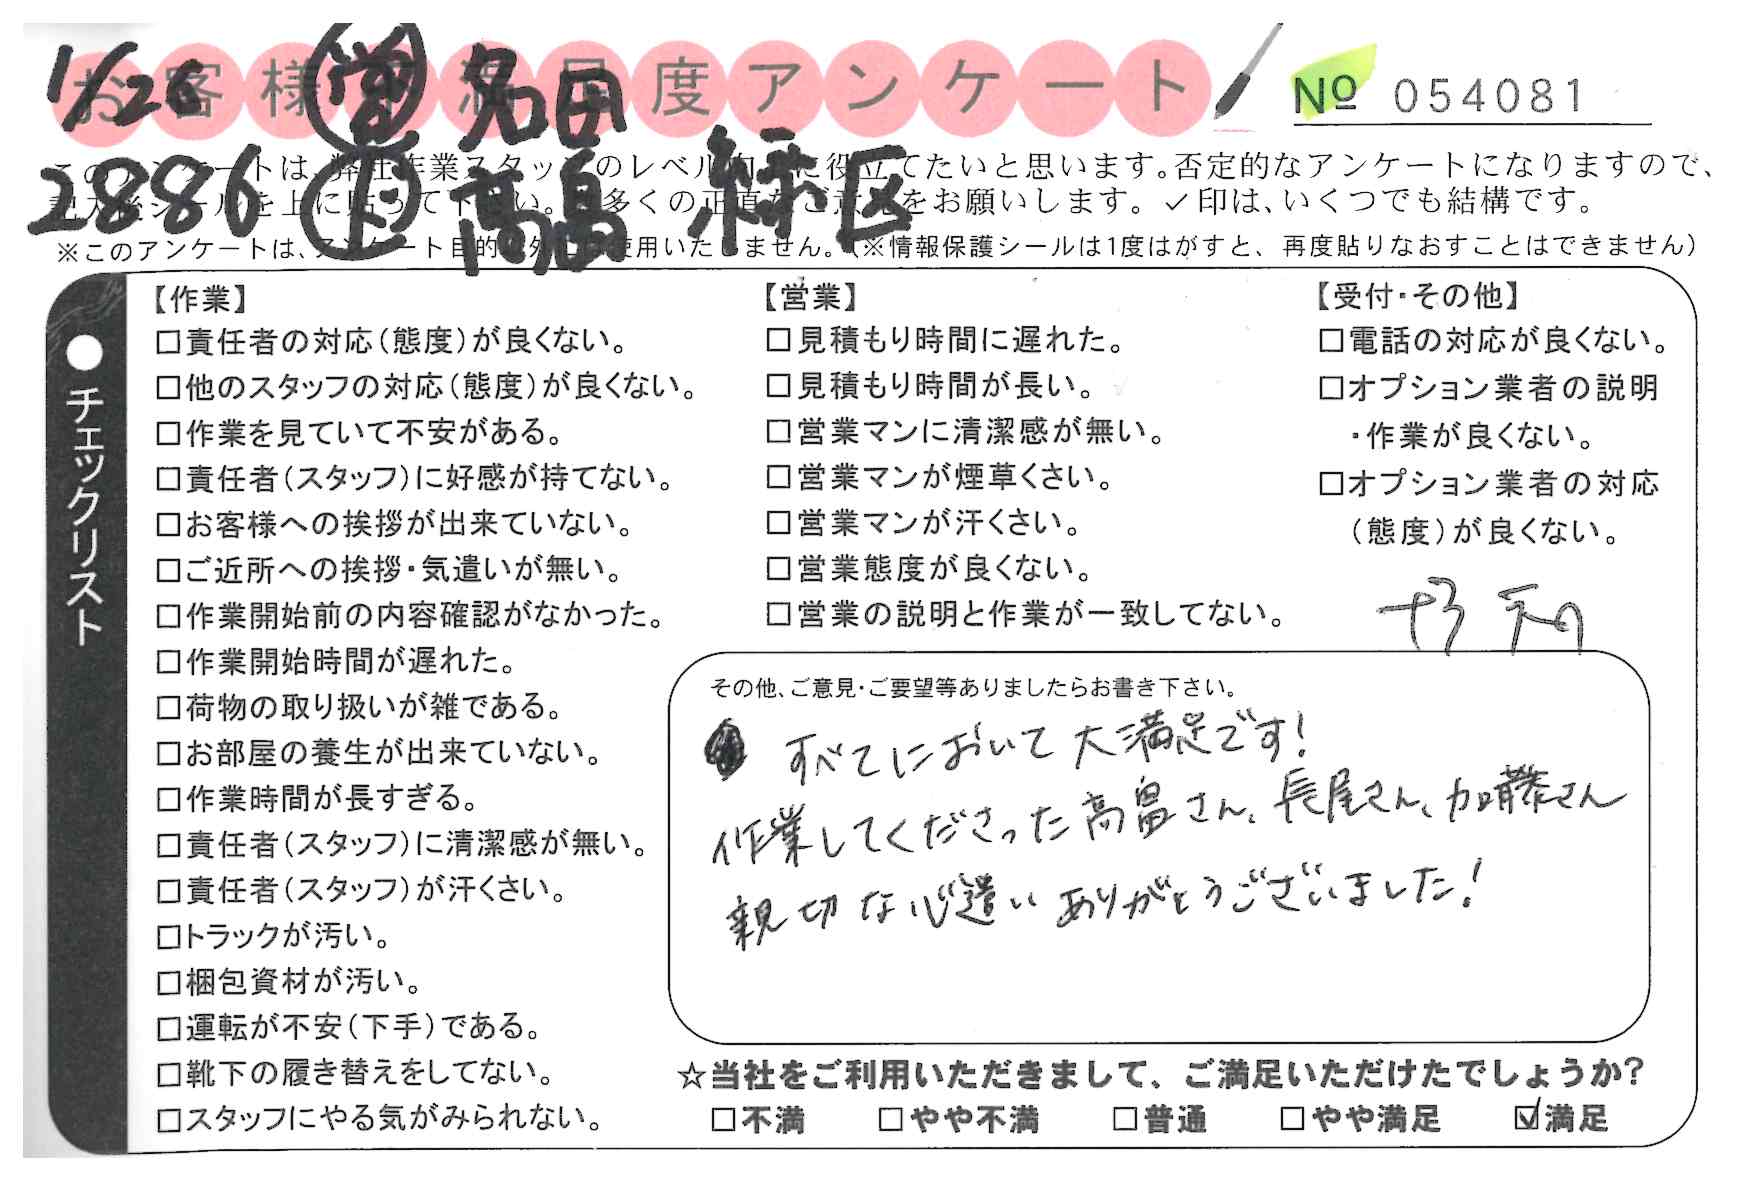 お客様不満足度アンケート
1/26 営 名田
№ 054081
2886 高畠 緑区
このアンケートは、弊社作業スタッフのレベル向上に役立てたいと思います。否定的なアンケートになりますので、
記入後シールを上に貼って下さい。 多くの正直なご意見をお願いします。✓印は、いくつでも結構です。
※このアンケートは、アンケート目的以外には使用いたしません。(※情報保護シールは1度はがすと、再度貼りなおすことはできません)
●チェックリスト
【作業】
□責任者の対応(態度)が良くない。
□他のスタッフの対応(態度)が良くない。
□作業を見ていて不安がある。
□責任者(スタッフ)に好感が持てない。
□お客様への挨拶が出来ていない。
□ご近所への挨拶・気遣いが無い。
□作業開始前の内容確認がなかった。
□作業開始時間が遅れた。
□荷物の取り扱いが雑である。
□お部屋の養生が出来ていない。
□作業時間が長すぎる。
□責任者(スタッフ)に清潔感が無い。
□責任者(スタッフ)が汗くさい。
□トラックが汚い。
□梱包資材が汚い。
□運転が不安(下手)である。
□靴下の履き替えをしてない。
□スタッフにやる気がみられない。
【営業】
□見積もり時間に遅れた。
□見積もり時間が長い。
□営業マンに清潔感が無い。
□営業マンが煙草くさい。
□営業マンが汗くさい。
□営業態度が良くない。
□営業の説明と作業が一致してない。
【受付・その他】
□電話の対応が良くない。
□オプション業者の説明
・作業が良くない。
□オプション業者の対応
(態度)が良くない。
その他、ご意見・ご要望等ありましたらお書き下さい。
すべてにおいて大満足です!
作業してくださった高畠さん、長尾さん、加藤さん
親切な心遣いありがとうございました!
☆当社をご利用いただきまして、ご満足いただけたでしょうか?
□不満 □やや不満 □普通 □やや満足 ☑満足